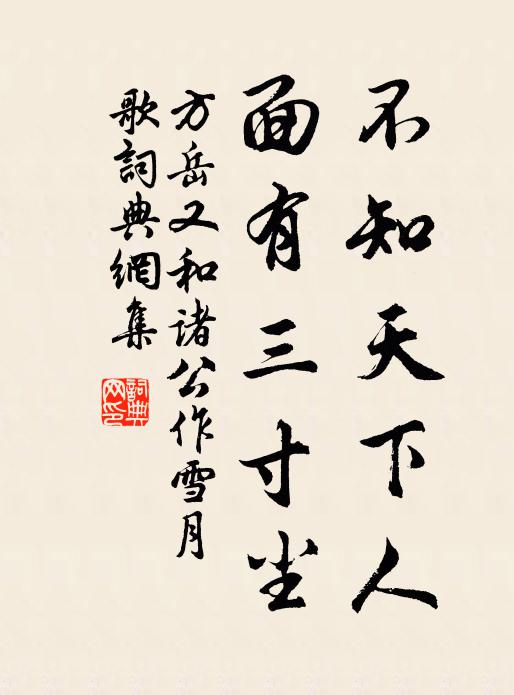 不知天下人
面有三寸尘
方岳又和諸公作雪月
歌詞典網集
詞典
网印